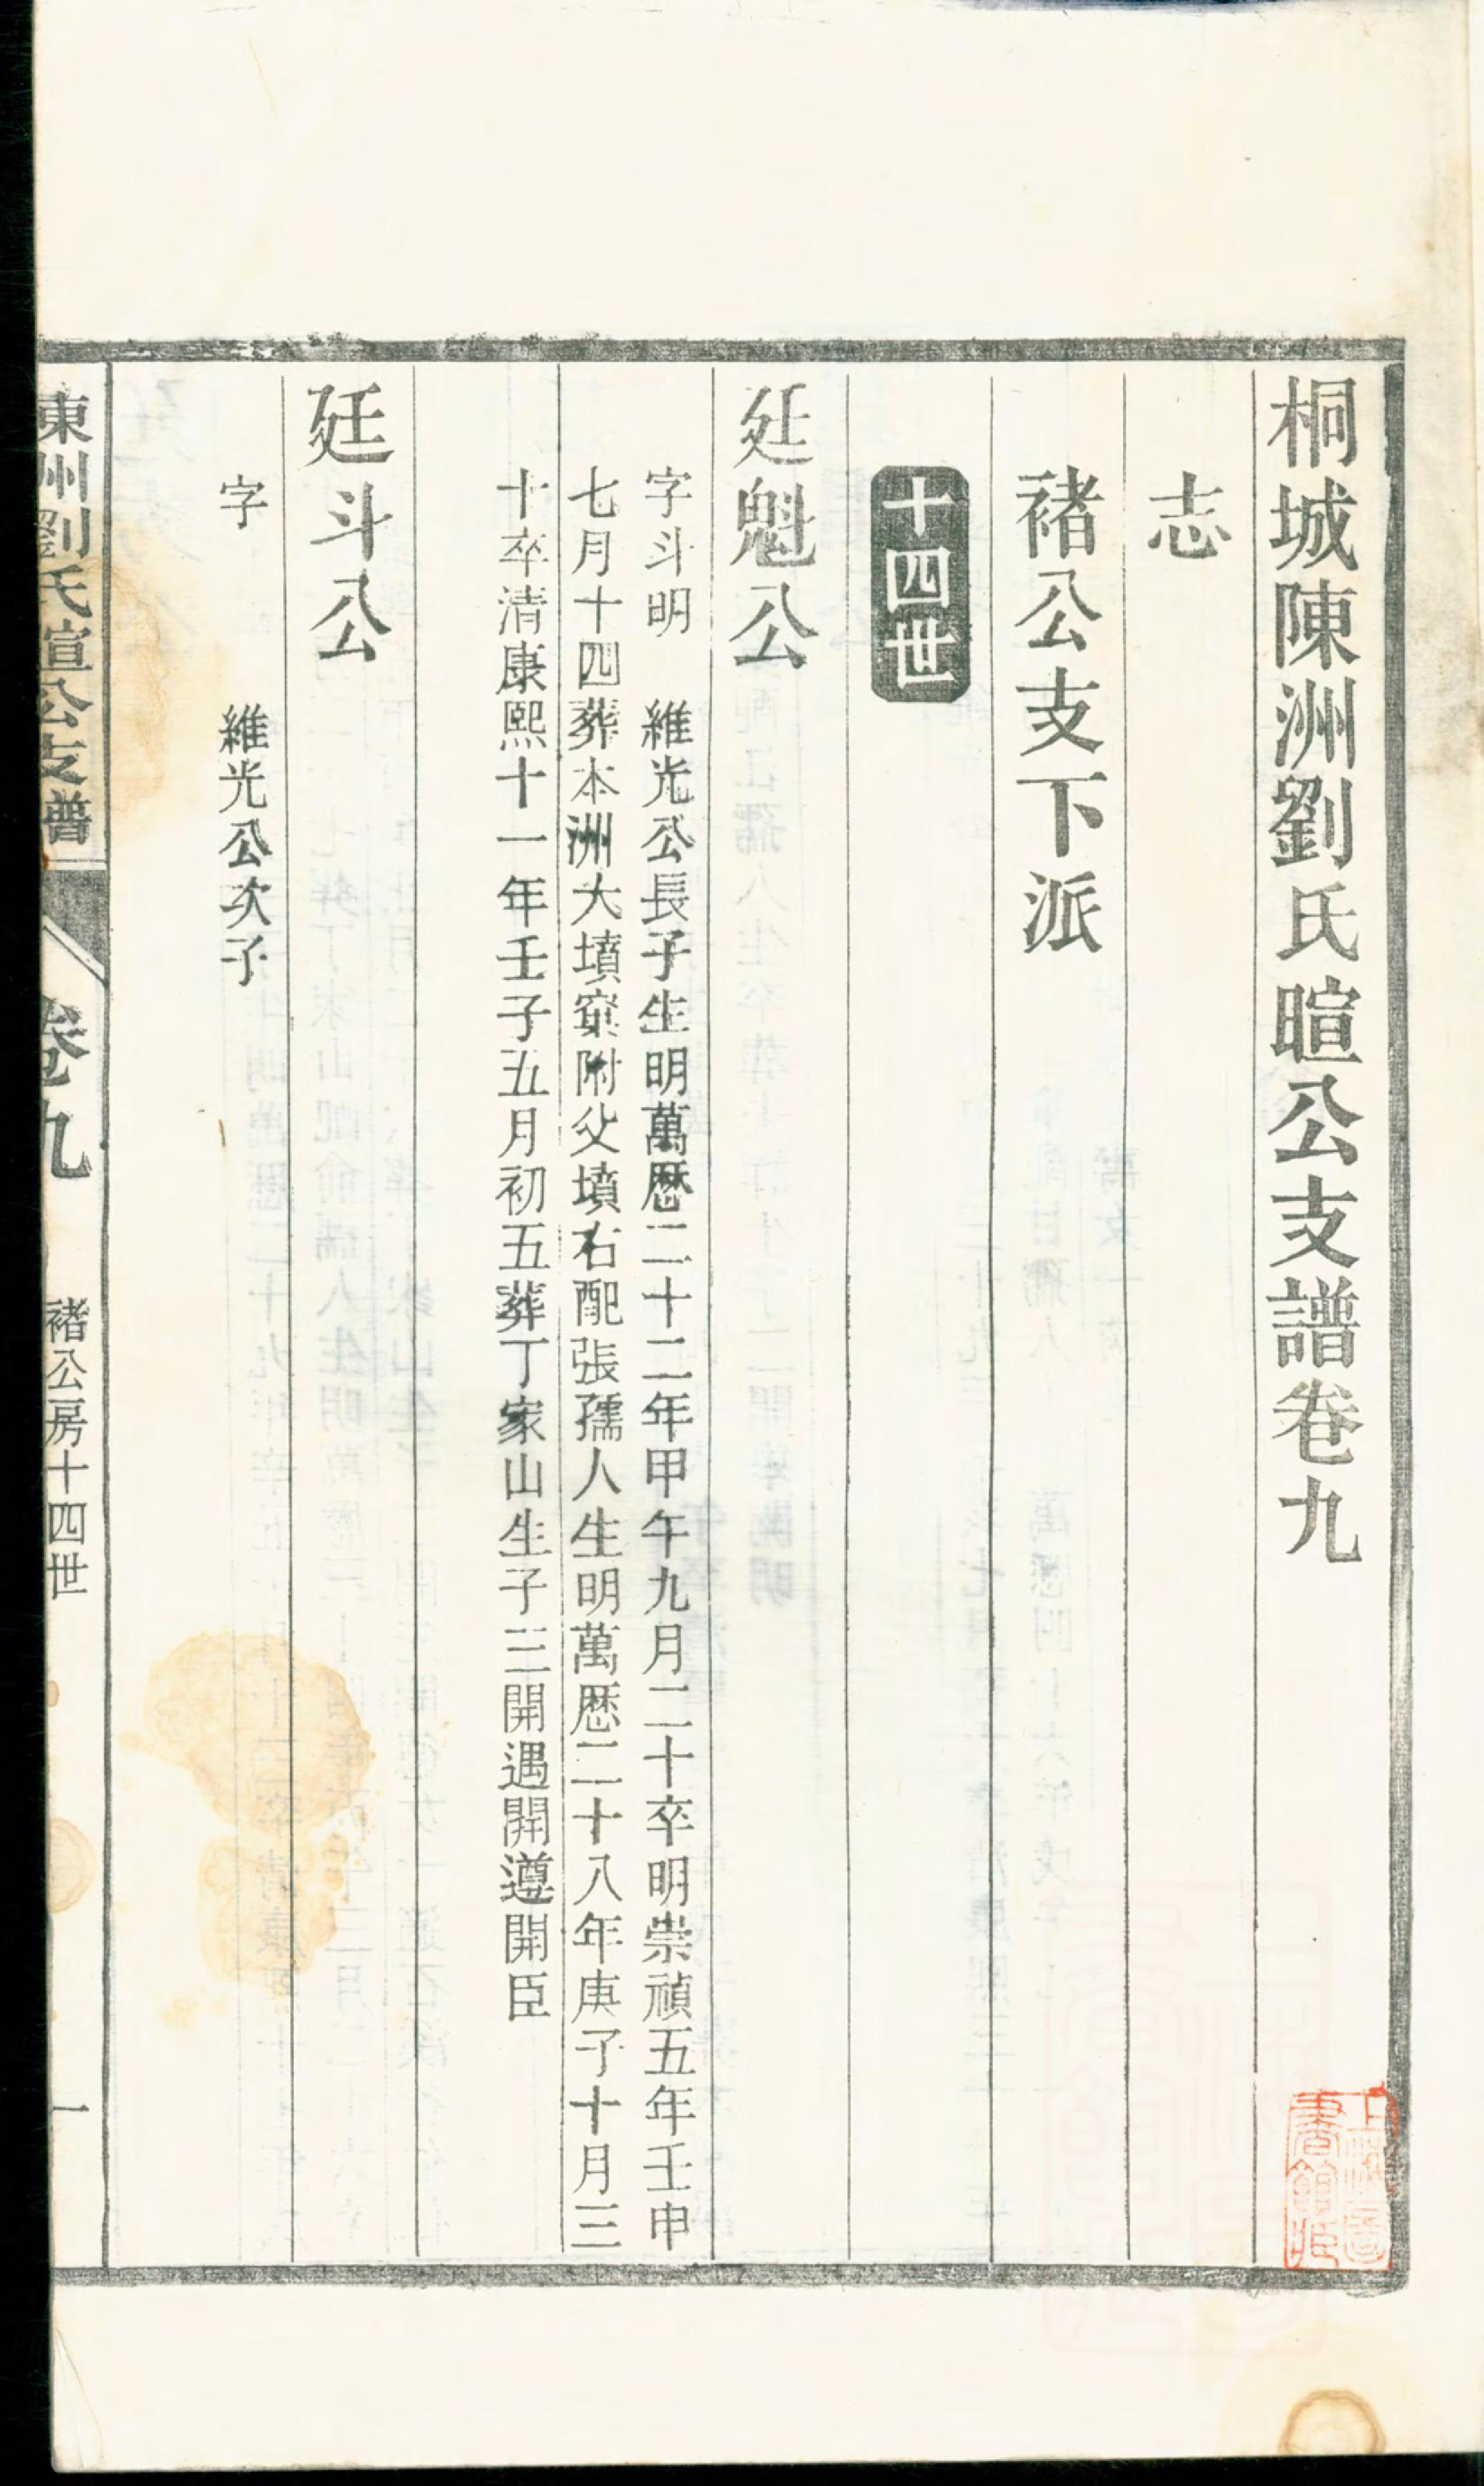 桐城陳洲劉氏暄公支譜卷九
志
褚公支下派
十四世
廷魁公
字斗明　維光公長子生明萬歷二十二年甲午九月二十卒明崇禎五年壬申
七月十四葬本洲大墳窠附父墳右配張孺人生明萬歷二十八年庚子十月三
十卒清康熙十一年壬子五月初五葬丁家山生子三開遇開遵開臣
廷斗公
字　　維光公次子
陳洲劉氏暄公支譜
卷九
褚公房十四世
一
上海圖書館藏